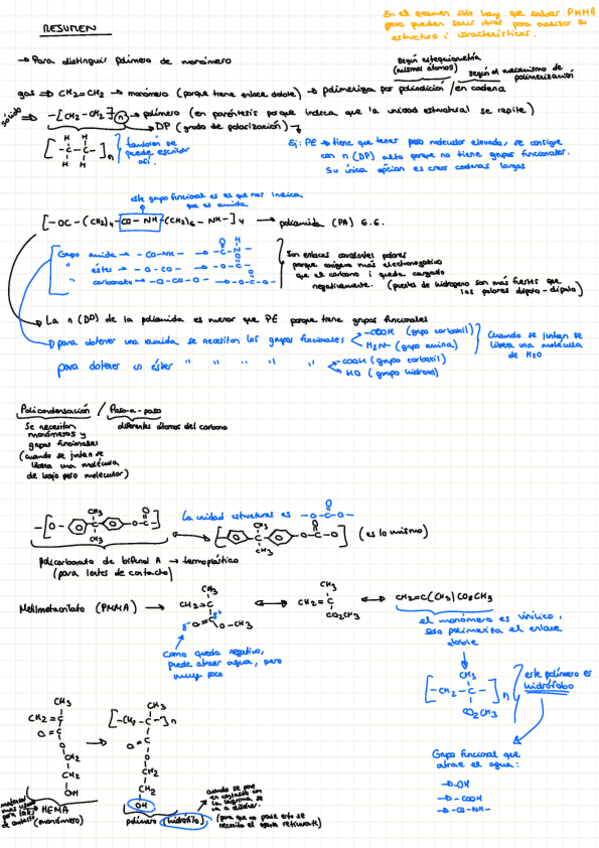 En el examen solo hay que saber PMMA
pero pueden salir otros para analizar su
estructura i características.
RESUMEN
→ Para distinguir polímero de monómero
Según estequiometría
(mismos átomos)
Según el mecanismo de
polimerización
gas ⇒ CH₂=CH₂ → monómero (porque tiene enlace doble) → polimeriza por poliadición / en cadena
sólido ⇒ -[CH₂-CH₂]n → polímero (en paréntesis porque indica que la unidad estructural se repite)
→ DP (grado de polarización)
H H
[-C-C-]n
H H
también se
puede escribir
así.
Ej: PE → tiene que tener peso molecular elevado, se consigue
con n (DP) alto porque no tiene grupos funcionales.
Su única opción es crear cadenas largas
este grupo funcional es el que nos indica
que es amida
[-OC-(CH₂)₄-CO-NH-(CH₂)₆-NH-]₄ → poliamida (PA) 6.6.
Grupo amida → -CO-NH- →
" éster → -O-CO- →
" carbonato → -O-CO-O- → -O-C-O-
Son enlaces covalentes polares
porque oxígeno más electronegativo
que el carbono i queda cargado
negativamente. (puentes de hidrógeno son más fuertes que
los polares dipolo-dipolo)
La n (DP) de la poliamida es menor que PE porque tiene grupos funcionales
para obtener una amida se necesitan los grupos funcionales
-COOH (grupo carboxil)
H₂N- (grupo amina)
Cuando se juntan se
libera una molécula
de H₂O
para obtener un éster " " " " "
-COOH (grupo carboxil)
HO (grupo hidroxil)
Policondensación / Paso-a-paso
Se necesitan
monómeros y
grupos funcionales
(cuando se juntan se
libera una molécula
de bajo peso molecular)
diferentes átomos del carbono
-[O- CH₃ C CH₃ -O-C-]
O
La unidad estructural es -O-C-O-
[- CH₃ C CH₃ -O-C-O] (es lo mismo)
policarbonato de bifenol A → termoplástico
(para lentes de contacto)
Metilmetacrilato (PMMA) →
CH₃
CH₂=C
O=C
O-CH₃
CH₃
CH₂=C
CO₂CH₃
CH₂=C(CH₃)CO₂CH₃
Como queda negativo,
puede atraer agua, pero
muy poco
el monómero es vinílico,
solo polimeriza el enlace
doble
CH₃
[-CH₂-C-]n
CO₂CH₃
este polímero es
hidrófobo
Grupo funcional que
atrae el agua:
→ -OH
→ -COOH
→ -CO-NH-
CH₃
CH₂=C
O=C
O
CH₂
CH₂
OH
CH₃
[-CH₂-C-]n
O=C
O
CH₂
CH₂
OH
material
más usado
para lentes
de contacto
HEMA
(monómero)
polímero (hidrófilo)
cuando se pone
en contacto con
la lágrima se
va a disolver.
(para que no pase esto se
necesita el agente reticulante)